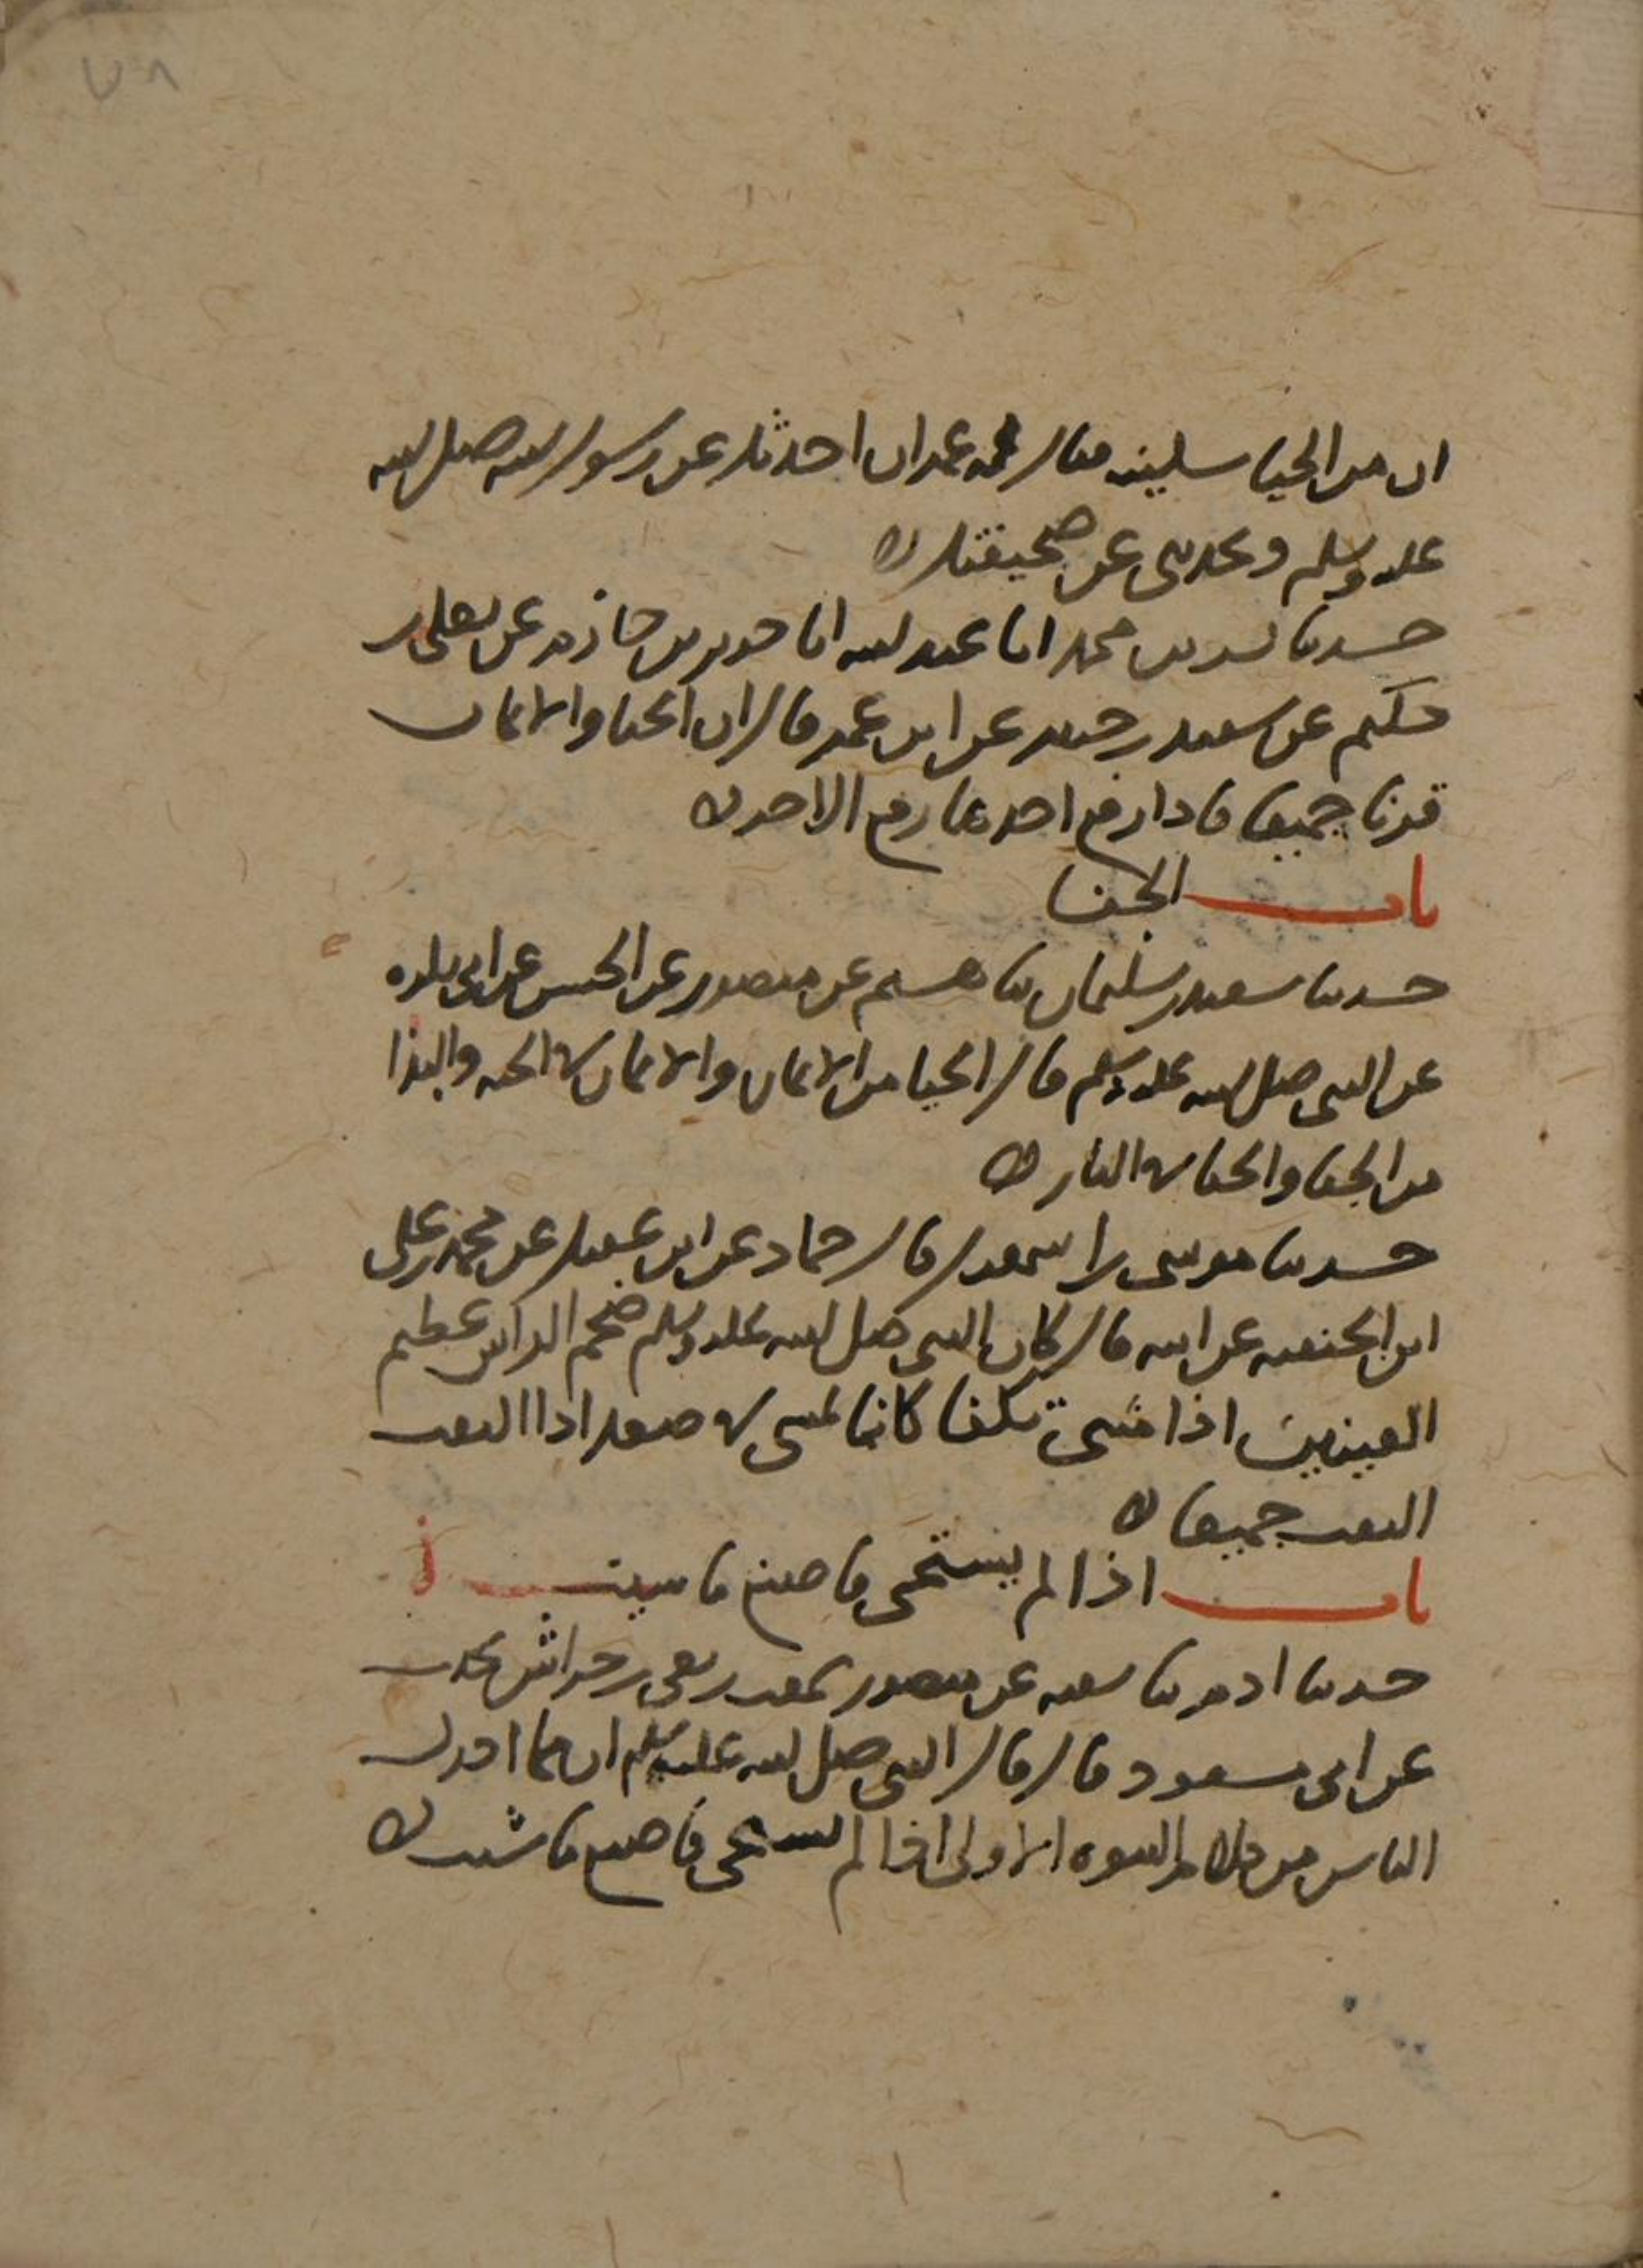 ٧٨
ان من الحيا سكينه فقال له عمران احدثك عن رسول الله صلى الله
عليه وسلم وتحدثني عن صحيفتك
حدثنا بشر بن محمد انا عبد الله انا جرير بن حازم عن يعلى بن
حكيم عن سعيد بن جبير عن ابن عمر قال ان الحيا والايمان
قرنا جميعا فاذا رفع احدهما رفع الاخر
باب الجفا
حدثنا سعيد بن سليمان ثنا هشيم عن منصور عن الحسن عن ابي بكره
عن النبي صلى الله عليه وسلم قال الحيا من الايمان والايمان في الجنه والبذا
من الجفا والجفا في النار
حدثنا موسى بن اسمعيل قال حماد عن ابن عقيل عن محمد بن علي
ابن الحنفيه عن ابيه قال كان النبي صلى الله عليه وسلم ضخم الراس عظيم
العينين اذا مشى تكفا كانما يمشي في صعد اذا التفت
التفت جميعا
باب اذا لم يستحي فاصنع ما شيت
حدثنا ادم ثنا شعبه عن منصور سمعت ربعي بن حراش يحدث
عن ابي مسعود قال قال النبي صلى الله عليه وسلم ان مما ادرك
الناس من كلام النبوه الاولى اذا لم تستحي فاصنع ما شيت